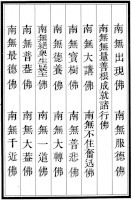 南無出現佛　南無服德佛
南無無量善根成就諸行佛
南無大講佛　南無不住奮迅佛
南無寶樹佛　南無普悲佛
南無德養佛　南無大轉佛
南無絕衆生疑王佛　南無一道佛
南無普蓋佛　南無大蓋佛
南無最德佛　南無千近佛